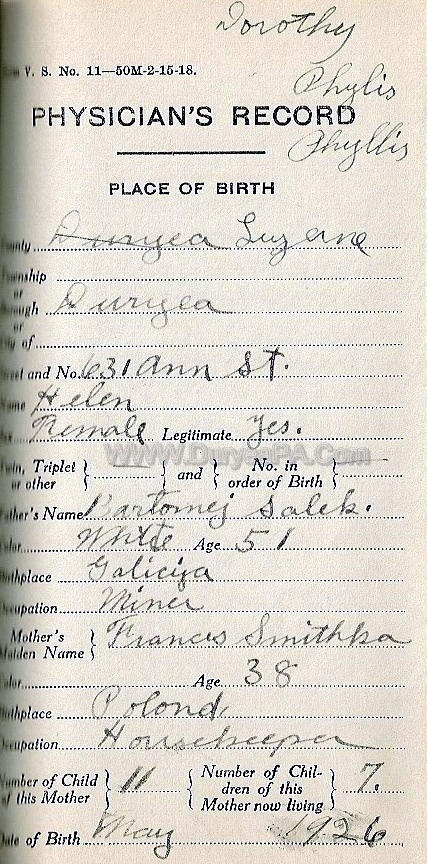 Dorothy
V. S. No. 11—50M-2-15-18.
Phylis
PHYSICIAN'S RECORD
Phyllis
PLACE OF BIRTH
County Duryea Luzerne
Township
or
Borough Duryea
or
City of
Street and No. 631 Ann St.
Name Helen
Female Legitimate Yes.
www.DuryeaPA.Com
Twin, Triplet or other } and { No. in order of Birth }
Father's Name Bartomej Salek.
Color White Age 51
Birthplace Galiciya
Occupation Miner
Mother's Maiden Name } Frances Smithka
Color Age 38
Birthplace Polond,
Occupation Housekeeper
Number of Child of this Mother } 11 { Number of Children of this Mother now living } 7.
Date of Birth May 1926